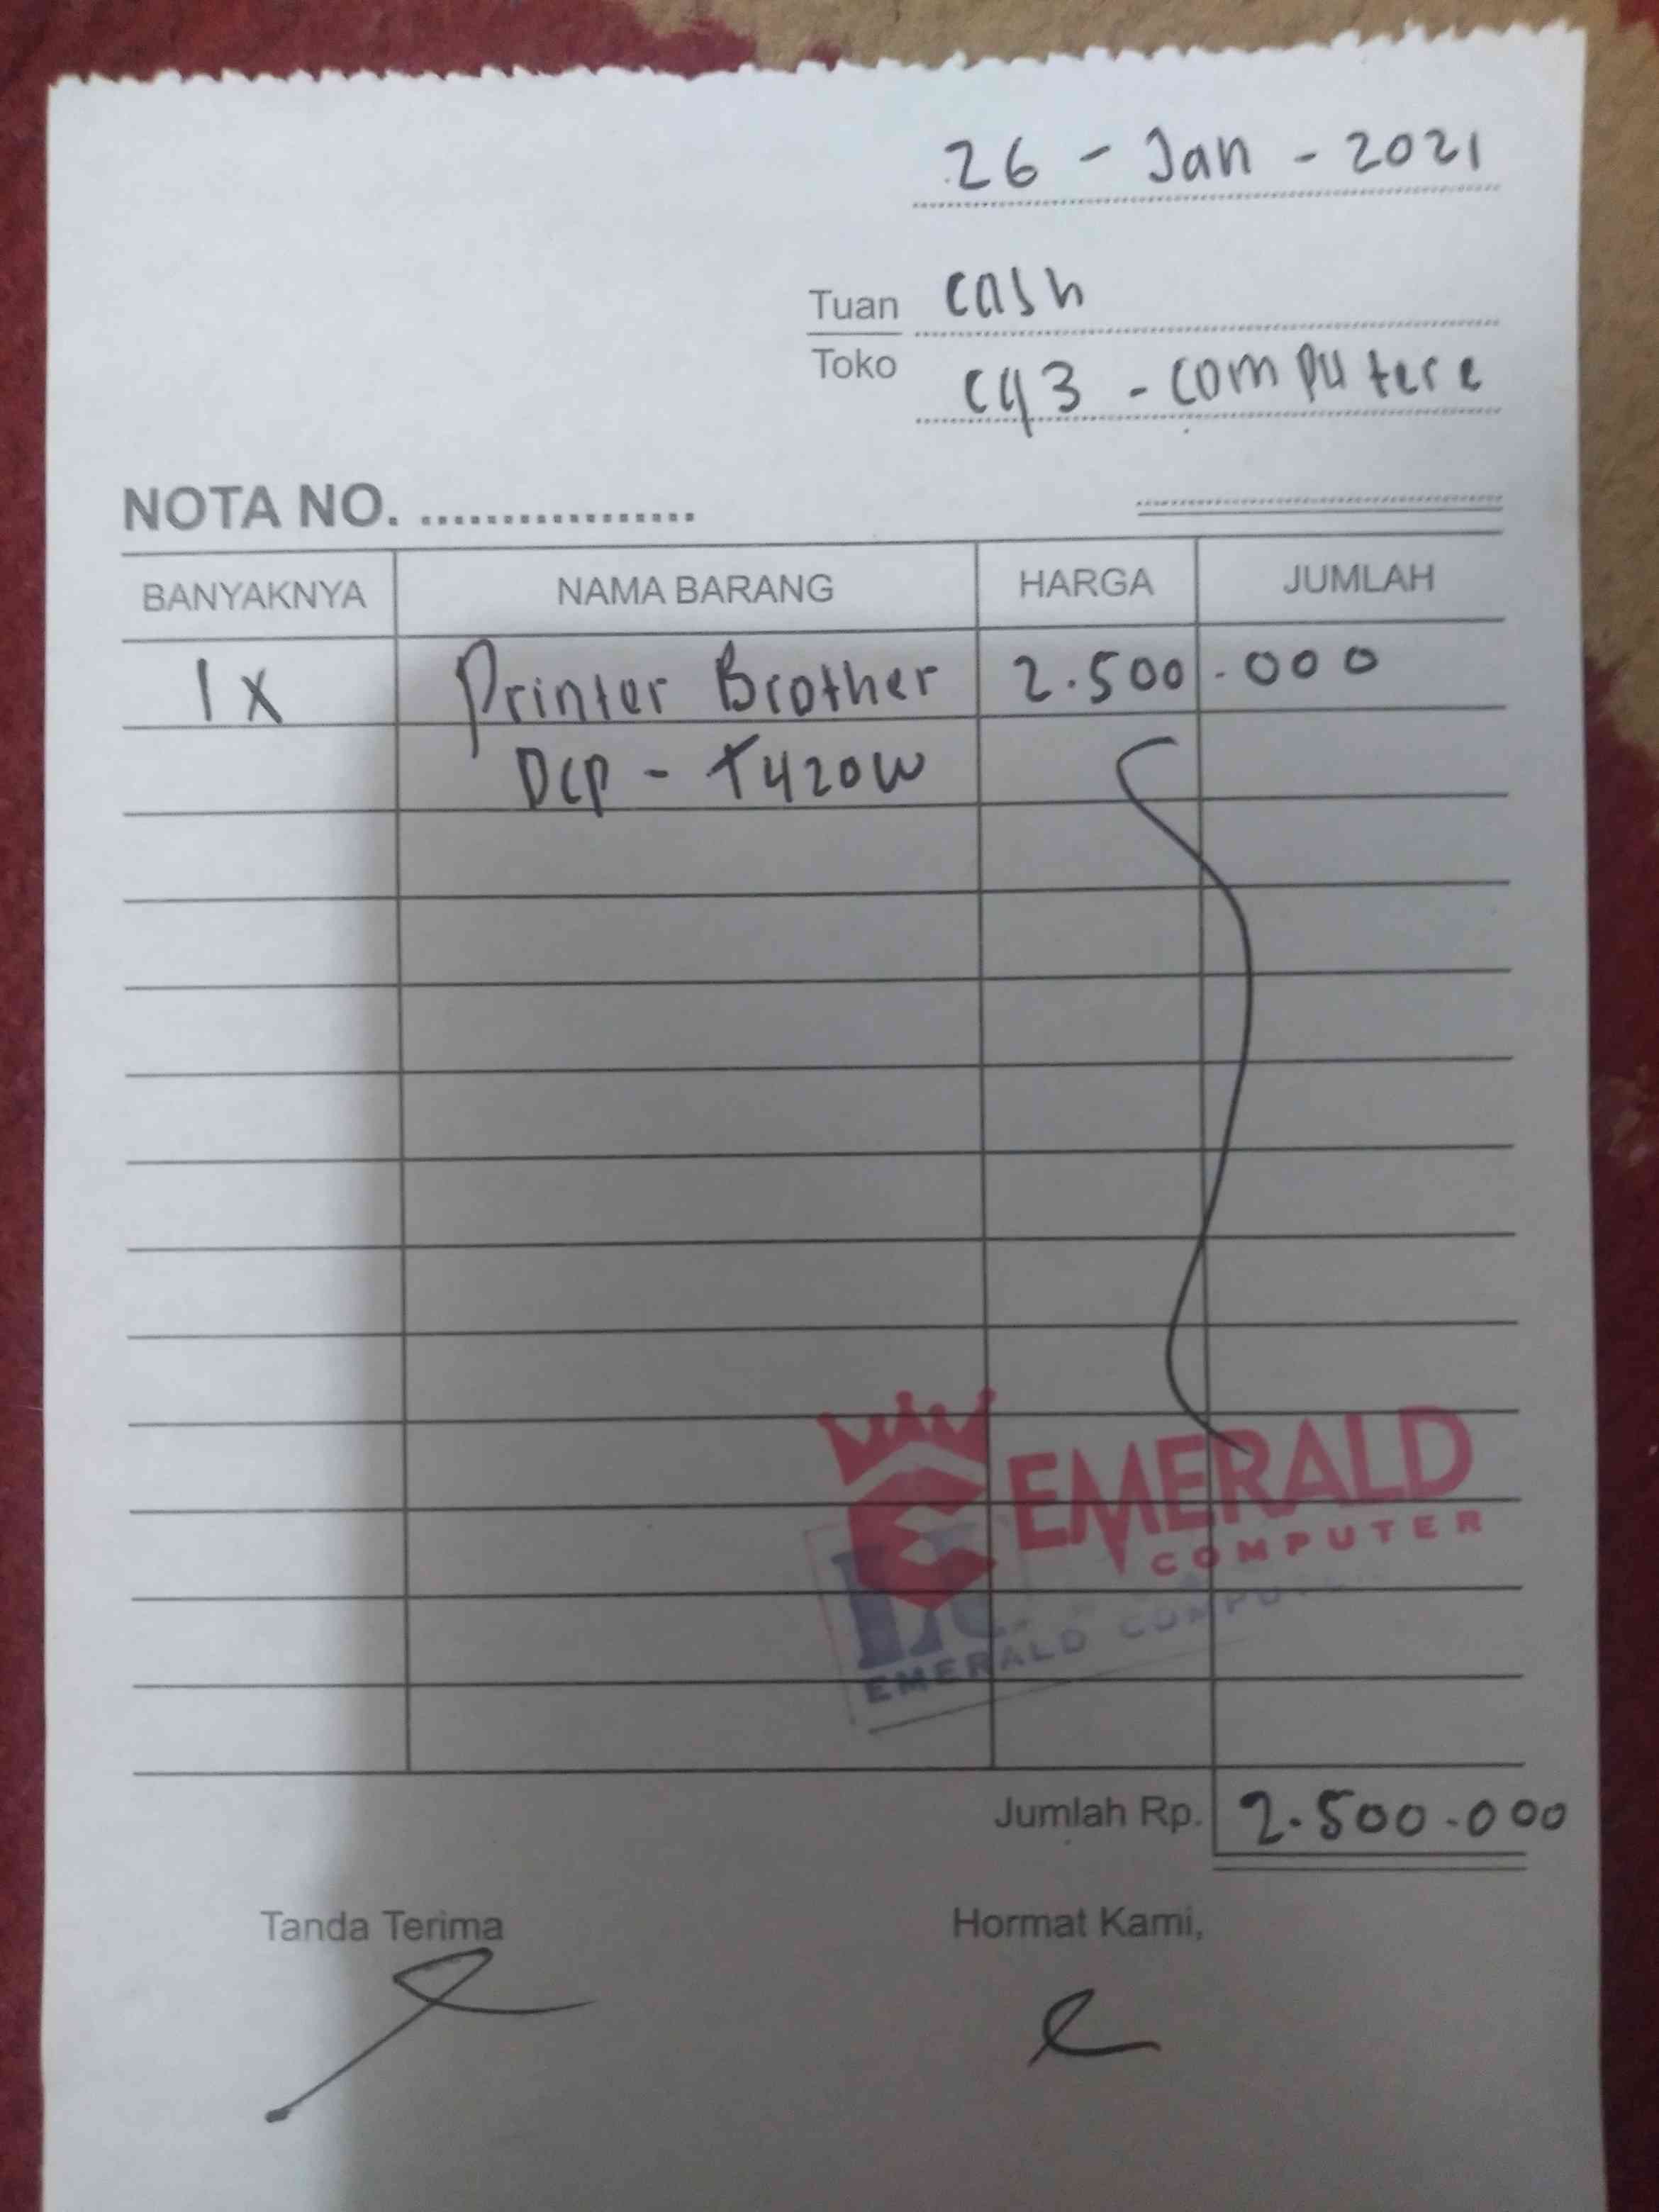 26 - Jan - 2021
Tuan cash
Toko - computere
NOTA NO. .................
BANYAKNYA NAMA BARANG HARGA JUMLAH
1 x Printer Brother 2.500.000
DCP - T420W
EMERALD
COMPUTER
EMERALD COMPUTER
Jumlah Rp. 2.500.000
Tanda Terima Hormat Kami,